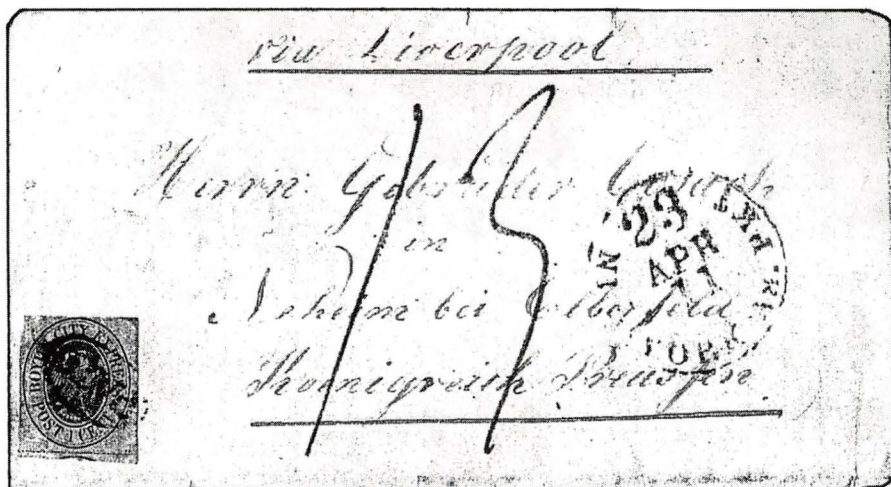 via Liverpool
13
Herrn Gebrüder
in
bei Elberfeld
Koenigreich Preussen
23
APR
11
N. YORK BR. PKT
BOYD'S CITY EXPRESS POST 1 CENT